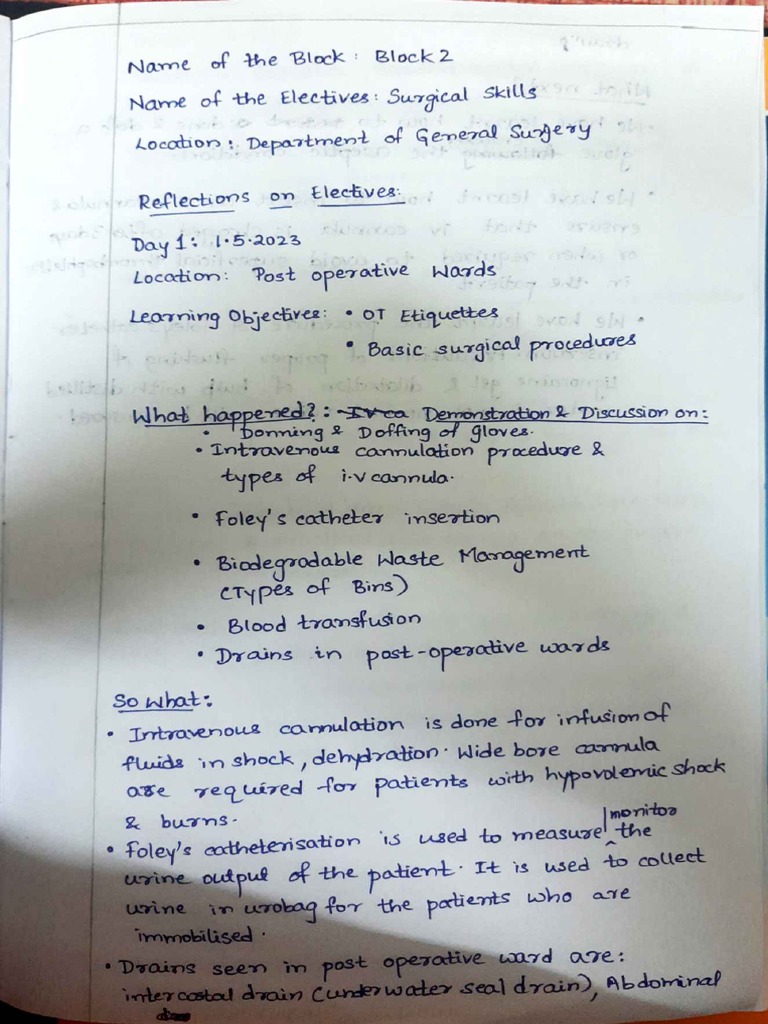 Name of the Block : Block 2
Name of the Electives : Surgical Skills
Location : Department of General Surgery
Reflections on Electives:
Day 1 : 1.5.2023
Location: Post operative Wards
Learning Objectives: • OT Etiquettes
• Basic surgical procedures
What happened? : IV ca Demonstration & Discussion on:
• Donning & Doffing of gloves.
• Intravenous cannulation procedure &
types of i.v cannula.
• Foley's catheter insertion
• Biodegradable Waste Management
(Types of Bins)
• Blood transfusion
• Drains in post-operative wards
So What:
• Intravenous cannulation is done for infusion of
fluids in shock, dehydration. Wide bore cannula
are required for patients with hypovolemic shock
& burns.
• Foley's catheterisation is used to measure | monitor the
urine output of the patient. It is used to collect
urine in urobag for the patients who are
immobilised.
• Drains seen in post operative ward are:
intercostal drain (underwater seal drain), Abdominal